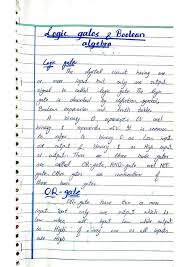 Logic gates & Boolean
algebra
Logic gate
The digital circuit having one
or more input but only one output
signal is called logic gate. The logic gate
is described by
Boolean expression and truth tables.
A binary 0, represents 0V and
binary 1, represents +5V. It is common
to
as output and binary 1 as High input
as output. There are three basic gates
are called OR-gate, AND-gate and NOT
gate. Other gates are combination of
these basic gates.
OR-gate
OR-gate have two or more
input but only one output which is
low when all input are low while output
is High if any one or all inputs
are High